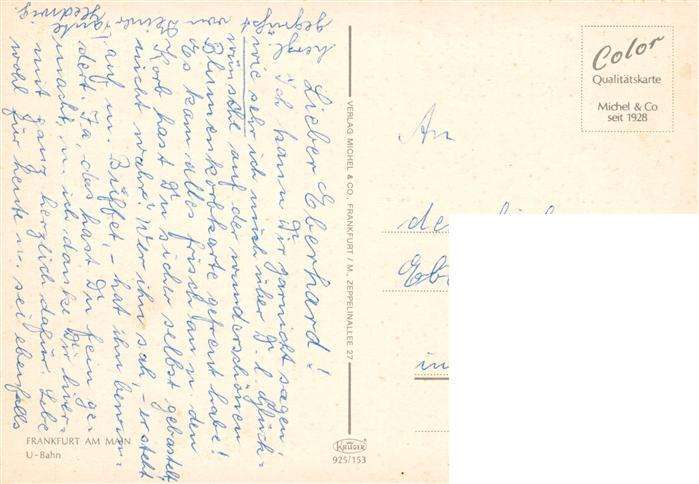 Lieber Eberhard!
Ich kann Dir garnicht sagen,
wie sehr ich mich über D. l. Glück-
wünsche auf der wunderschönen
Blumenkorbkarte gefreut habe!
Es kam alles frisch an u. den
Korb hast Du sicher selbst gebastelt,
nicht wahr? Wer ihn sah, - er steht
auf m. Büffet, - hat ihn bewun-
dert. Ja, das hast Du fein ge-
macht, u. ich danke Dir hier-
mit ganz herzlich dafür. Lebe
wohl für heute u. sei ebenfalls
herzl.
gegrüßt
von Deiner
Tante
Hedwig
FRANKFURT AM MAIN
U-Bahn
VERLAG MICHEL & CO., FRANKFURT / M. ZEPPELINALLEE 27
Krüger
925/153
Color
Qualitätskarte
Michel & Co
seit 1928
An
in